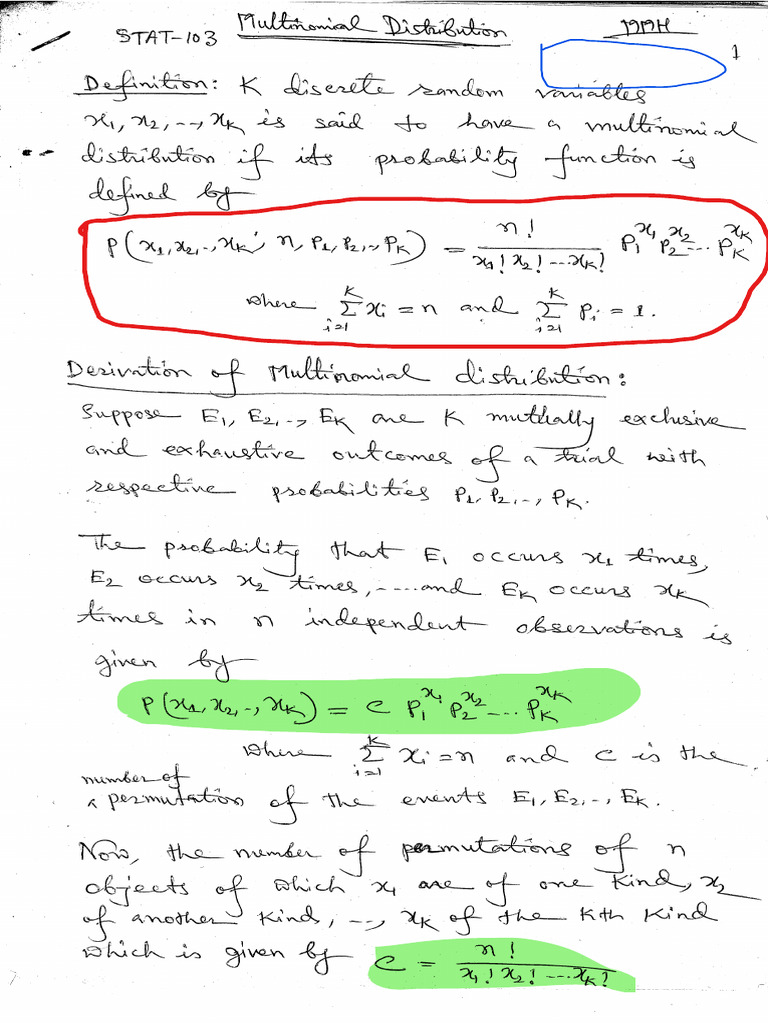 STAT-103 Multinomial Distribution 1
Definition: K discrete random variables
x₁, x₂, .., xₖ is said to have a multinomial
distribution if its probability function is
defined by
P(x₁, x₂, .., xₖ; n, P₁, P₂, .., Pₖ) = n! / (x₁! x₂! ... xₖ!) P₁^x₁ P₂^x₂ ... Pₖ^xₖ
where Σ_{i=1}^{K} xᵢ = n and Σ_{i=1}^{K} Pᵢ = 1.
Derivation of Multinomial distribution:
Suppose E₁, E₂, .., Eₖ are K mutually exclusive
and exhaustive outcomes of a trial with
respective probabilities P₁, P₂, .., Pₖ.
The probability that E₁ occurs x₁ times,
E₂ occurs x₂ times, .... and Eₖ occurs xₖ
times in n independent observations is
given by
P(x₁, x₂, .., xₖ) = c P₁^x₁ P₂^x₂ ... Pₖ^xₖ
where Σ_{i=1}^{K} xᵢ = n and c is the
number of
permutation of the events E₁, E₂, .., Eₖ.
Now, the number of permutations of n
objects of which x₁ are of one kind, x₂
of another kind, .., xₖ of the Kth kind
which is given by c = n! / (x₁! x₂! ... xₖ!)